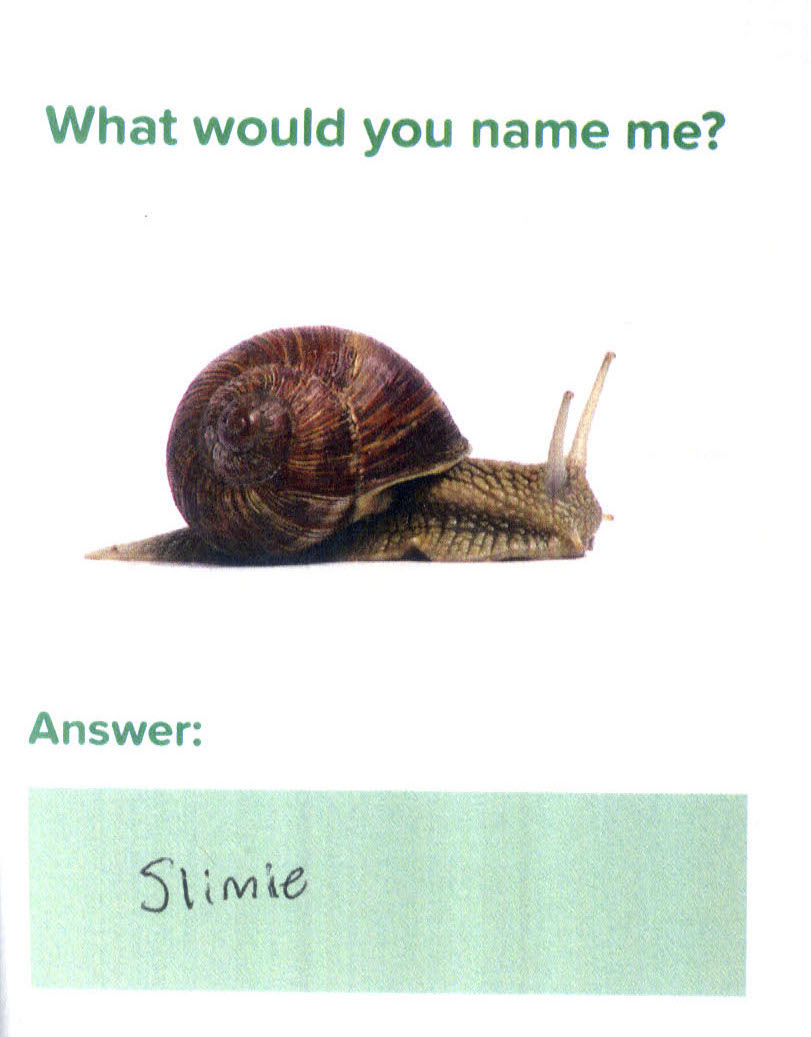 What would you name me?
Answer:
Slimie